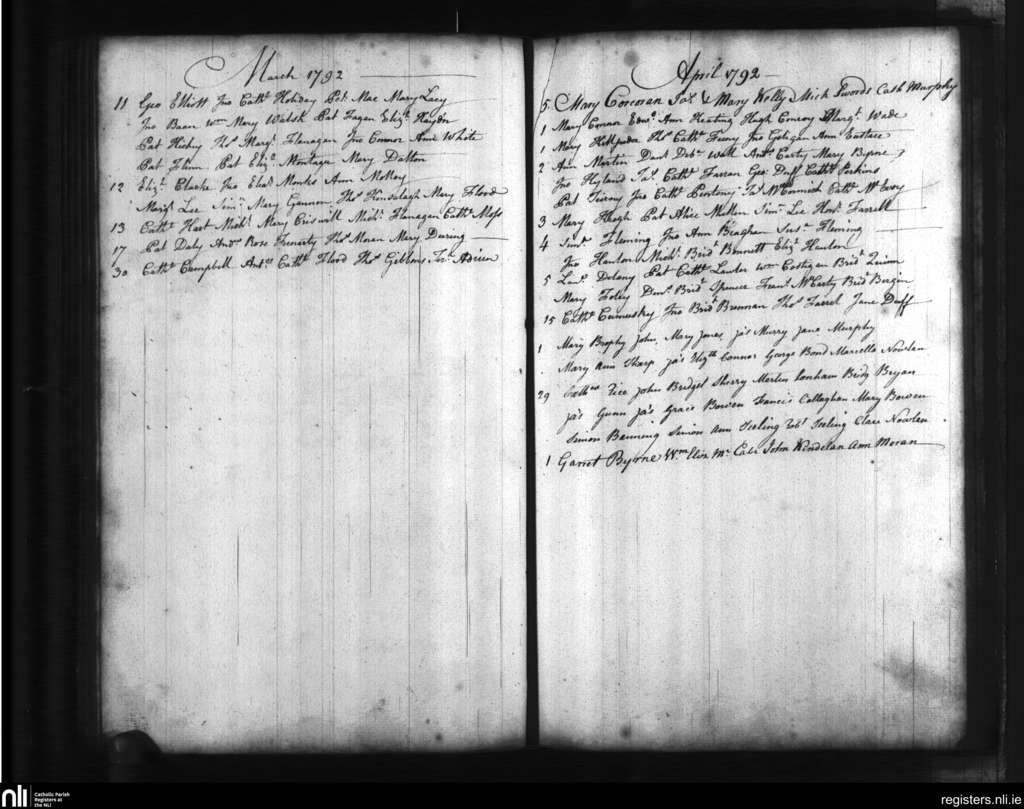 March 1792
11 Geo Elliott Jno Cathe Holiday Pat Mae Mary Lacy
Jno Baan Wm Mary Walsh Pat Fagan Elizh Haydn
Pat Hickey Thos Margt Flanagan Jno Connor Ann White
Pat Flinn Pat Elizh Montage Mary Dalton
12 Elizh Clarke Jno Monks Ann Molloy
Margt Lee Simn Mary Gannon Thos Mary Flood
13 Cathe Hart Michl Mary Michl Flanagan Cathe Moss
17 Pat Daly Andw Rose Thos Moran Mary During
30 Cathe Campbell Anty Cathe Flood Thos Gibbons
April 1792
5 Mary Corcoran Jas & Mary Kelly Mich Swords Cath Murphy
1 Mary Connor Edwd Ann Keating Hugh Conroy Margt Wade
1 Mary Thos Cathe Jno Ann
2 Ann Martin Danl Wall Andw Carty Mary Byrne
Jno Hyland Jas Cathe Farran Geo Duff Cathe Perkins
Pat Jno Cathe Jas McCormick Cathe McEvoy
3 Mary Hugh Pat Alice Simn Lee Farrell
4 Simn Fleming Jno Ann Susn Fleming
Jno Hanlon Michl Brid Bennett Elizh Hanlon
5 Laur Delany Pat Cathe Lawler Wm Costigan Bridt Quinn
Mary Foley Bridt Spencer Frans McCarty Brid Bergin
15 Cathe Jno Bridt Brennan Thos Farrel Jane Duff
1 Mary Brophy John, Mary Jones, Jas Murry Jane Murphy
Mary Ann Tharp Jas Connor George Bond Marcella Nowlan
29 John Bridget Sherry Martin Bridg Bryan
Jas Gunn Jas Grace Bowen Francis Callaghan Mary Bowen
Simon Simon Ann Teeling Teeling Clare Nowlan
1 Garret Byrne Wm Eliza McCabe John Ann Moran
nli
Catholic Parish
Registers at
the NLI
registers.nli.ie